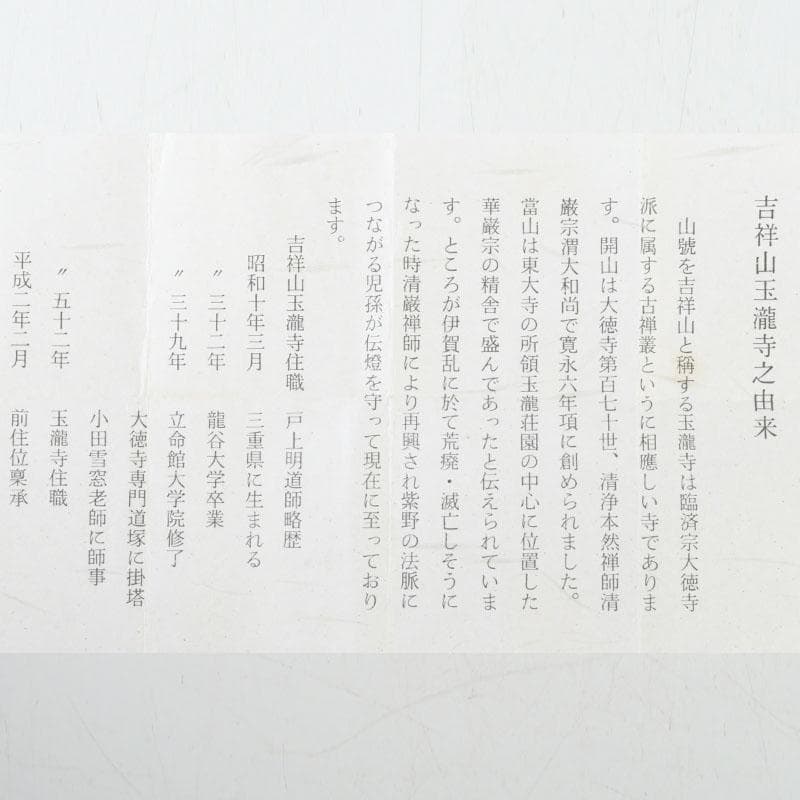 吉祥山玉瀧寺之由来
山號を吉祥山と稱する玉瀧寺は臨済宗大徳寺
派に属する古禅叢というに相應しい寺でありま
す。開山は大徳寺第百七十世、清浄本然禅師清
巌宗渭大和尚で寛永六年項に創められました。
當山は東大寺の所領玉瀧荘園の中心に位置した
華巌宗の精舎で盛んであったと伝えられていま
す。ところが伊賀乱に於て荒廃・滅亡しそうに
なった時清巌禅師により再興され紫野の法脈に
つながる児孫が伝燈を守って現在に至っており
ます。
吉祥山玉瀧寺住職 戸上明道師略歴
昭和十年三月 三重県に生まれる
〃 三十二年 龍谷大学卒業
〃 三十九年 立命館大学院修了
大徳寺専門道塚に掛塔
小田雪窓老師に師事
〃 五十二年 玉瀧寺住職
平成二年二月 前住位稟承